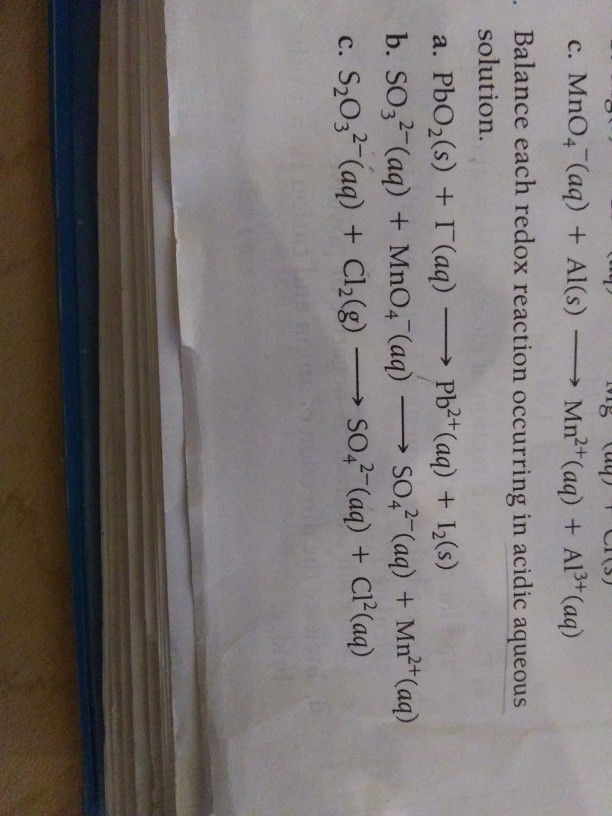 c. MnO₄⁻(aq) + Al(s) ⟶ Mn²⁺(aq) + Al³⁺(aq)
Balance each redox reaction occurring in acidic aqueous
solution.
a. PbO₂(s) + I⁻(aq) ⟶ Pb²⁺(aq) + I₂(s)
b. SO₃²⁻(aq) + MnO₄⁻(aq) ⟶ SO₄²⁻(aq) + Mn²⁺(aq)
c. S₂O₃²⁻(aq) + Cl₂(g) ⟶ SO₄²⁻(aq) + Cl²(aq)